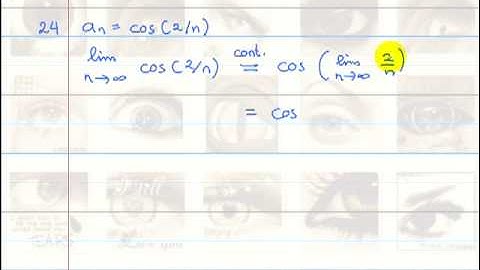 24 aₙ = cos(2/n)
lim n→∞ cos(2/n) cont. = cos ( lim n→∞ 2/n )
= cos